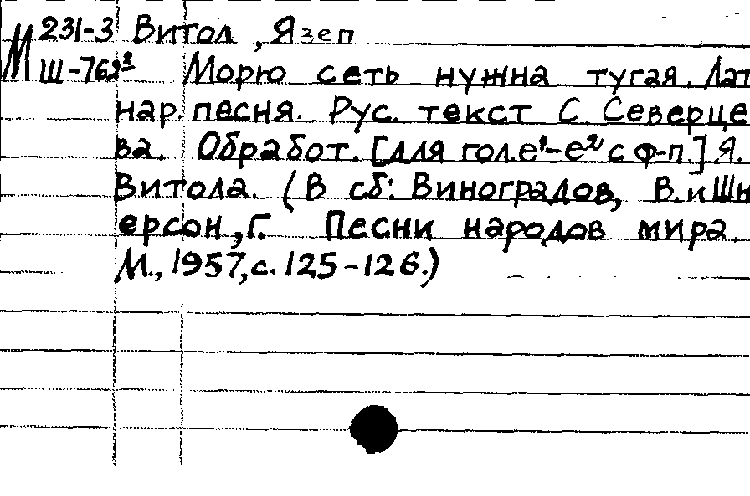 М 231-3 Витол, Язеп
Ш-769³ Морю сеть нужна тугая. Лат
нар. песня. Рус. текст С. Северце
ва. Обработ. [для гол. е¹-е² с ф-п.] Я.
Витола. (В сб: Виноградов, В. и Шн
ерсон, Г. Песни народов мира.
М., 1957, с. 125-126.)